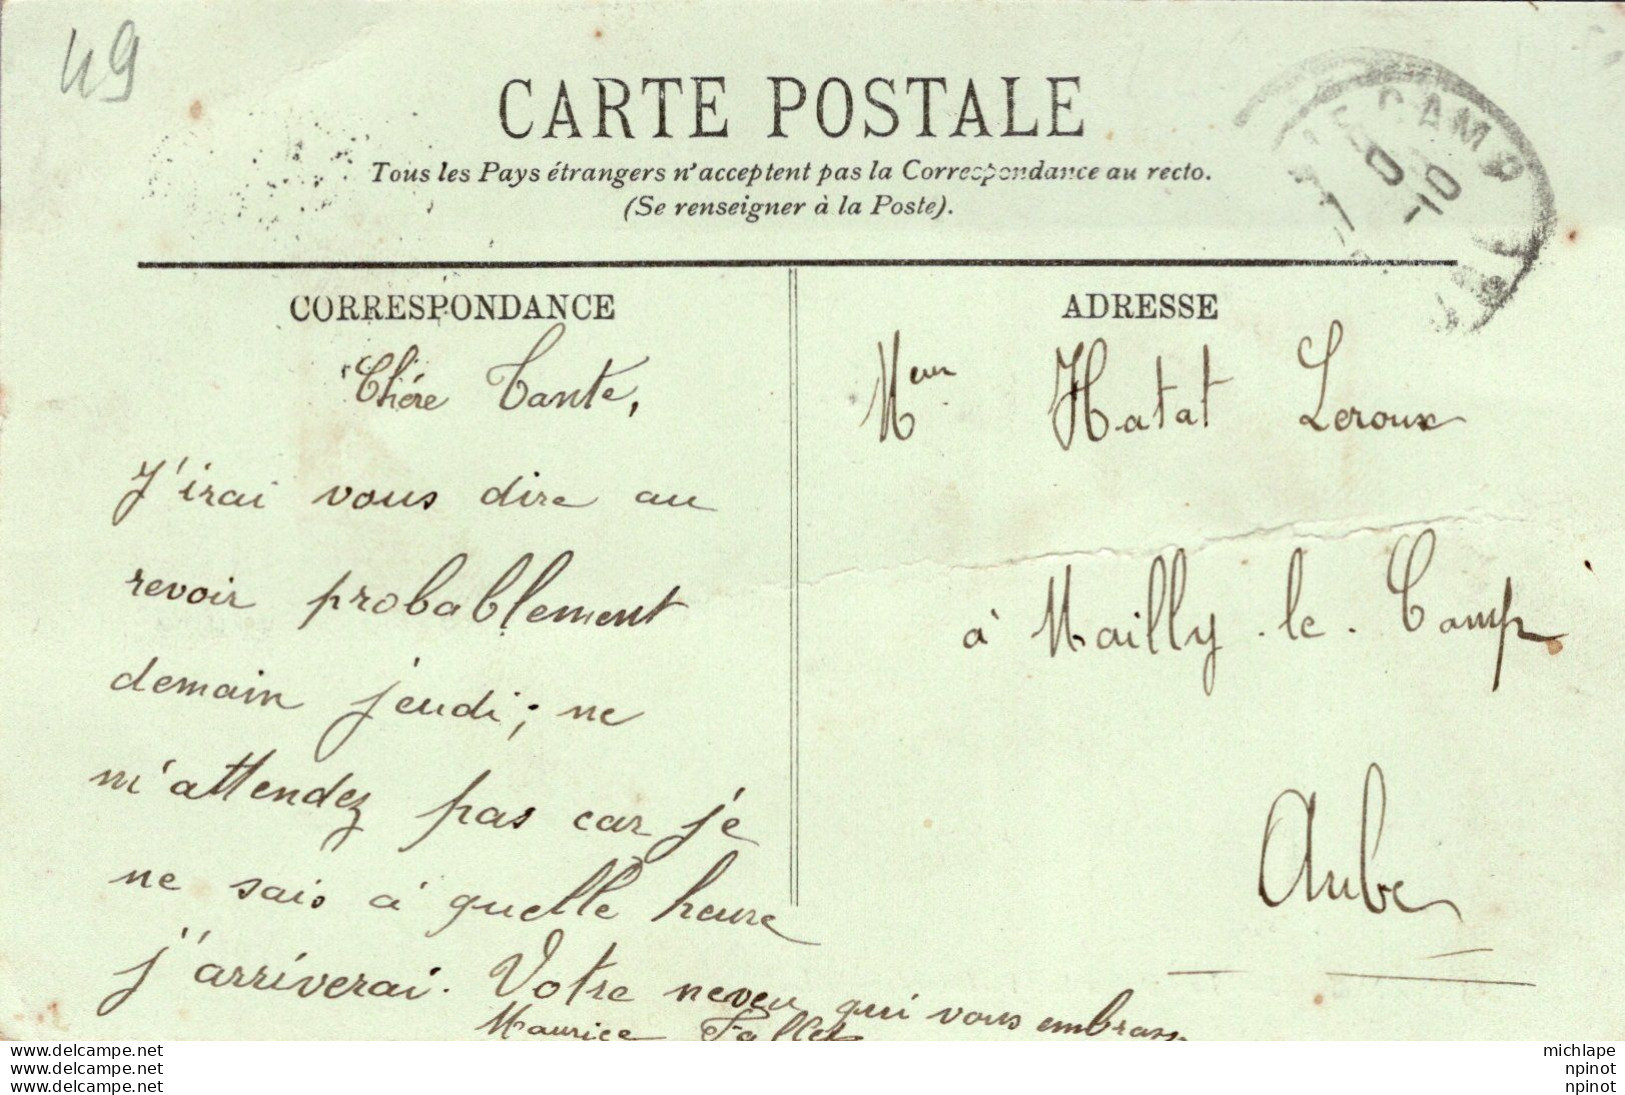 49
CARTE POSTALE
Tous les Pays étrangers n'acceptent pas la Correspondance au recto.
(Se renseigner à la Poste).
LE CAMP
CORRESPONDANCE
Chère Tante,
J'irai vous dire au
revoir probablement
demain jeudi; ne
m'attendez pas car je
ne sais à quelle heure
j'arriverai. Votre neveu qui vous embrasse
Maurice
ADRESSE
Hatat Leroux
à Mailly-le-Camp
Aube
delcampe.net
delcampe.net
delcampe.net
michlape
npinot
npinot